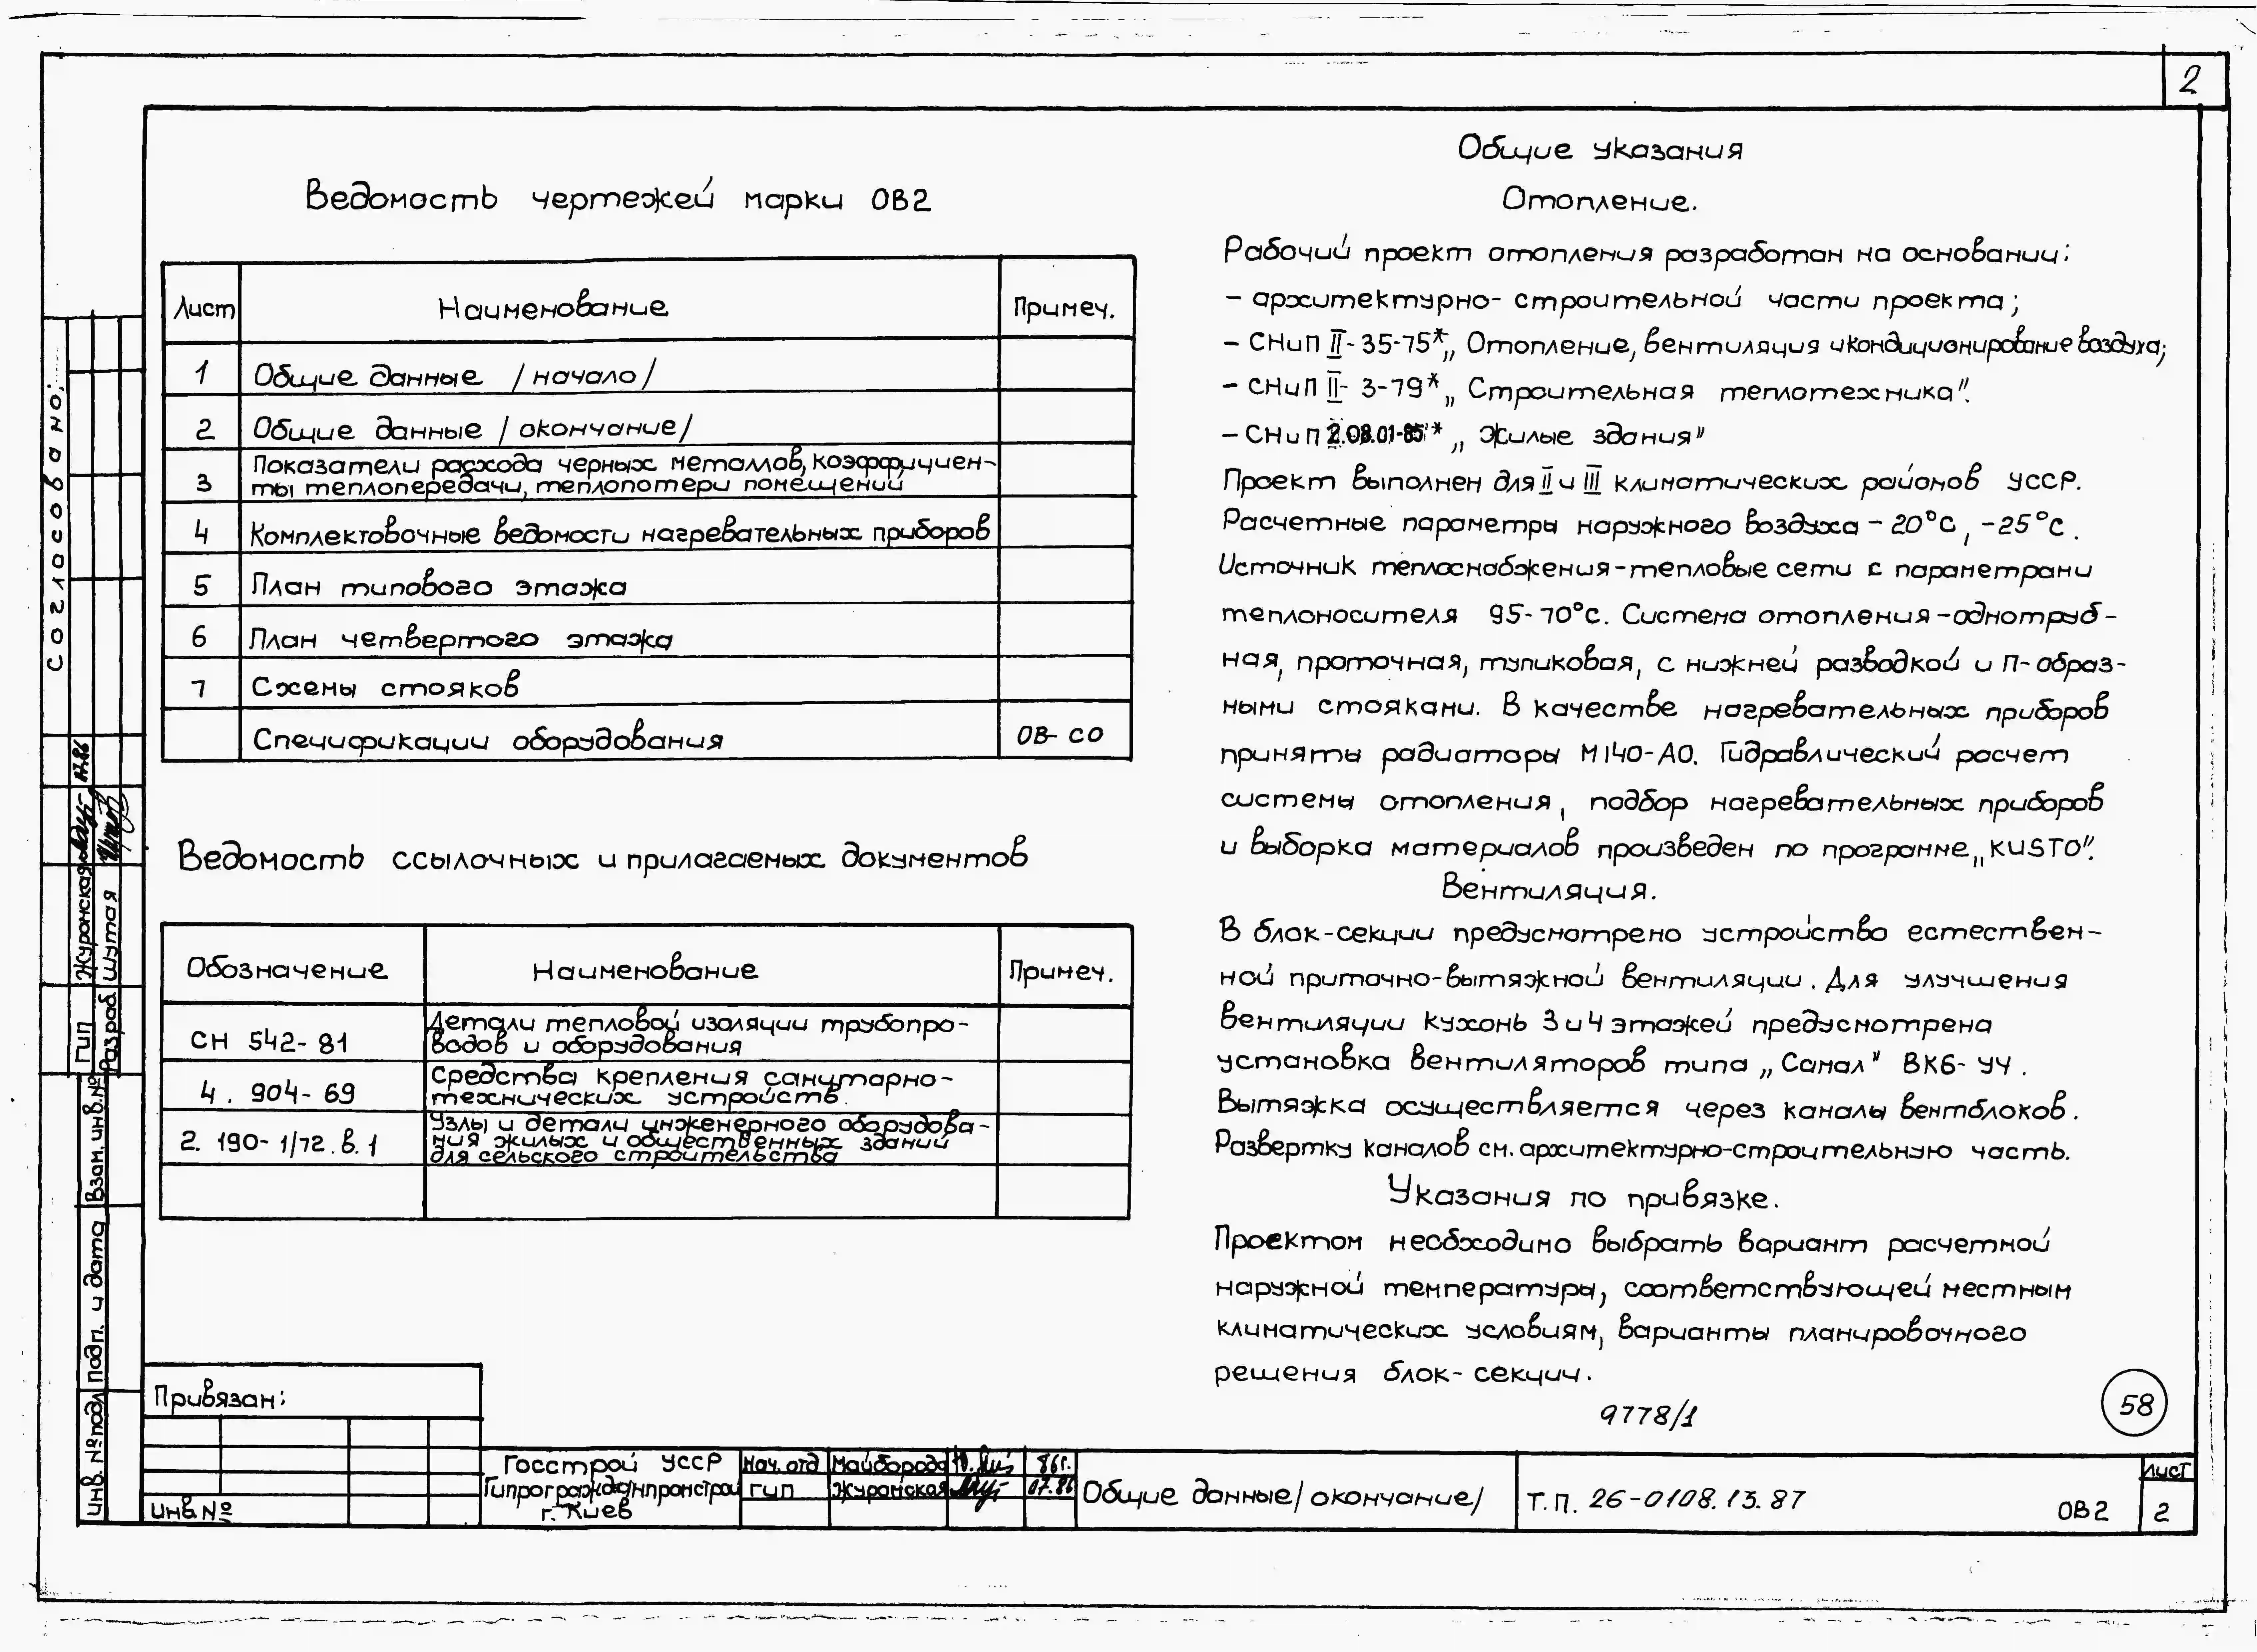 2
Ведомость чертежей марки ОВ2
Лист Наименование Примеч.
1 Общие данные /начало/
2 Общие данные /окончание/
3 Показатели расхода черных металлов, коэффициен-
ты теплопередачи, теплопотери помещений
4 Комплектовочные ведомости нагревательных приборов
5 План типового этажа
6 План четвертого этажа
7 Схемы стояков
Спецификации оборудования ОВ-СО
Ведомость ссылочных и прилагаемых документов
Обозначение Наименование Примеч.
СН 542-81 Детали тепловой изоляции трубопро-
водов и оборудования
4.904-69 Средства крепления санитарно-
технических устройств.
2.190-1/72.в.1 Узлы и детали инженерного оборудова-
ния жилых и общественных зданий
для сельского строительства
Общие указания
Отопление.
Рабочий проект отопления разработан на основании:
- архитектурно-строительной части проекта;
- СНиП II-35-75* „Отопление, вентиляция и кондиционирование воздуха;
- СНиП II-3-79* „Строительная теплотехника".
- СНиП 2.08.01-85* „Жилые здания"
Проект выполнен для II и III климатических районов УССР.
Расчетные параметры наружного воздуха -20°С, -25°С.
Источник теплоснабжения-тепловые сети с параметрами
теплоносителя 95-70°С. Система отопления-однотруб-
ная, проточная, тупиковая, с нижней разводкой и П-образ-
ными стояками. В качестве нагревательных приборов
приняты радиаторы М140-АО. Гидравлический расчет
системы отопления, подбор нагревательных приборов
и выборка материалов произведен по программе „KUSTO".
Вентиляция.
В блок-секции предусмотрено устройство естествен-
ной приточно-вытяжной вентиляции. Для улучшения
вентиляции кухонь 3 и 4 этажей предусмотрена
установка вентиляторов типа „Самал" ВК6-У4.
Вытяжка осуществляется через каналы вентблоков.
Развертку каналов см. архитектурно-строительную часть.
Указания по привязке.
Проектом необходимо выбрать вариант расчетной
наружной температуры, соответствующей местным
климатических условиям, варианты планировочного
решения блок-секции.
9778/1
58
Согласовано:
ГИП Журонская 07.86
Разраб Шутая
Инв. № подл Подп. и дата Взам. инв. №
Привязан:
Инв. №
Госстрой УССР
Гипрогражданпромстрой
г. Киев
Нач. отд Майборода 86г.
ГИП Журонская 07.86
Общие данные/окончание/
Т.П. 26-0108.13.87
ОВ2
Лист
2